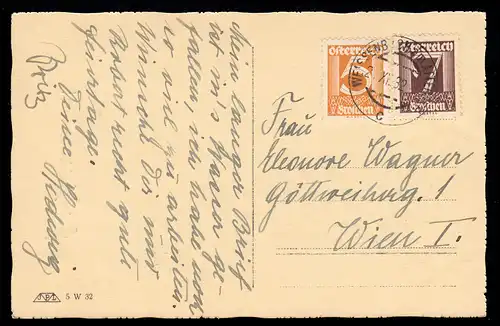 Mein langer Brief
ist in's Wasser ge-
fallen, ich habe noch
so viel zu arbeiten.
Wünsche Dir und
Robert recht gute
Feiertage.
Deine Hedwig
Fritz
Österreich
Groschen
Österreich
7
Groschen
Frau
Eleonore Wagner
Göttweiherg. 1
Wien I.
5 W 32